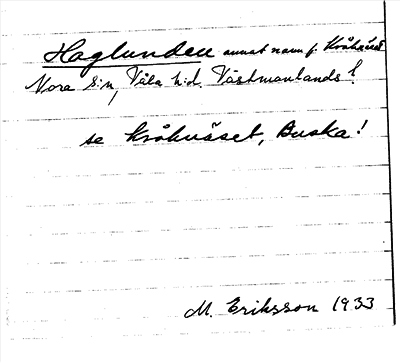 Haglunden annat namn f. Kråknäset
Nora s:n, Våla h:d. Västmanlands l.
se Kråknäset, Buska!
M. Eriksson 1933